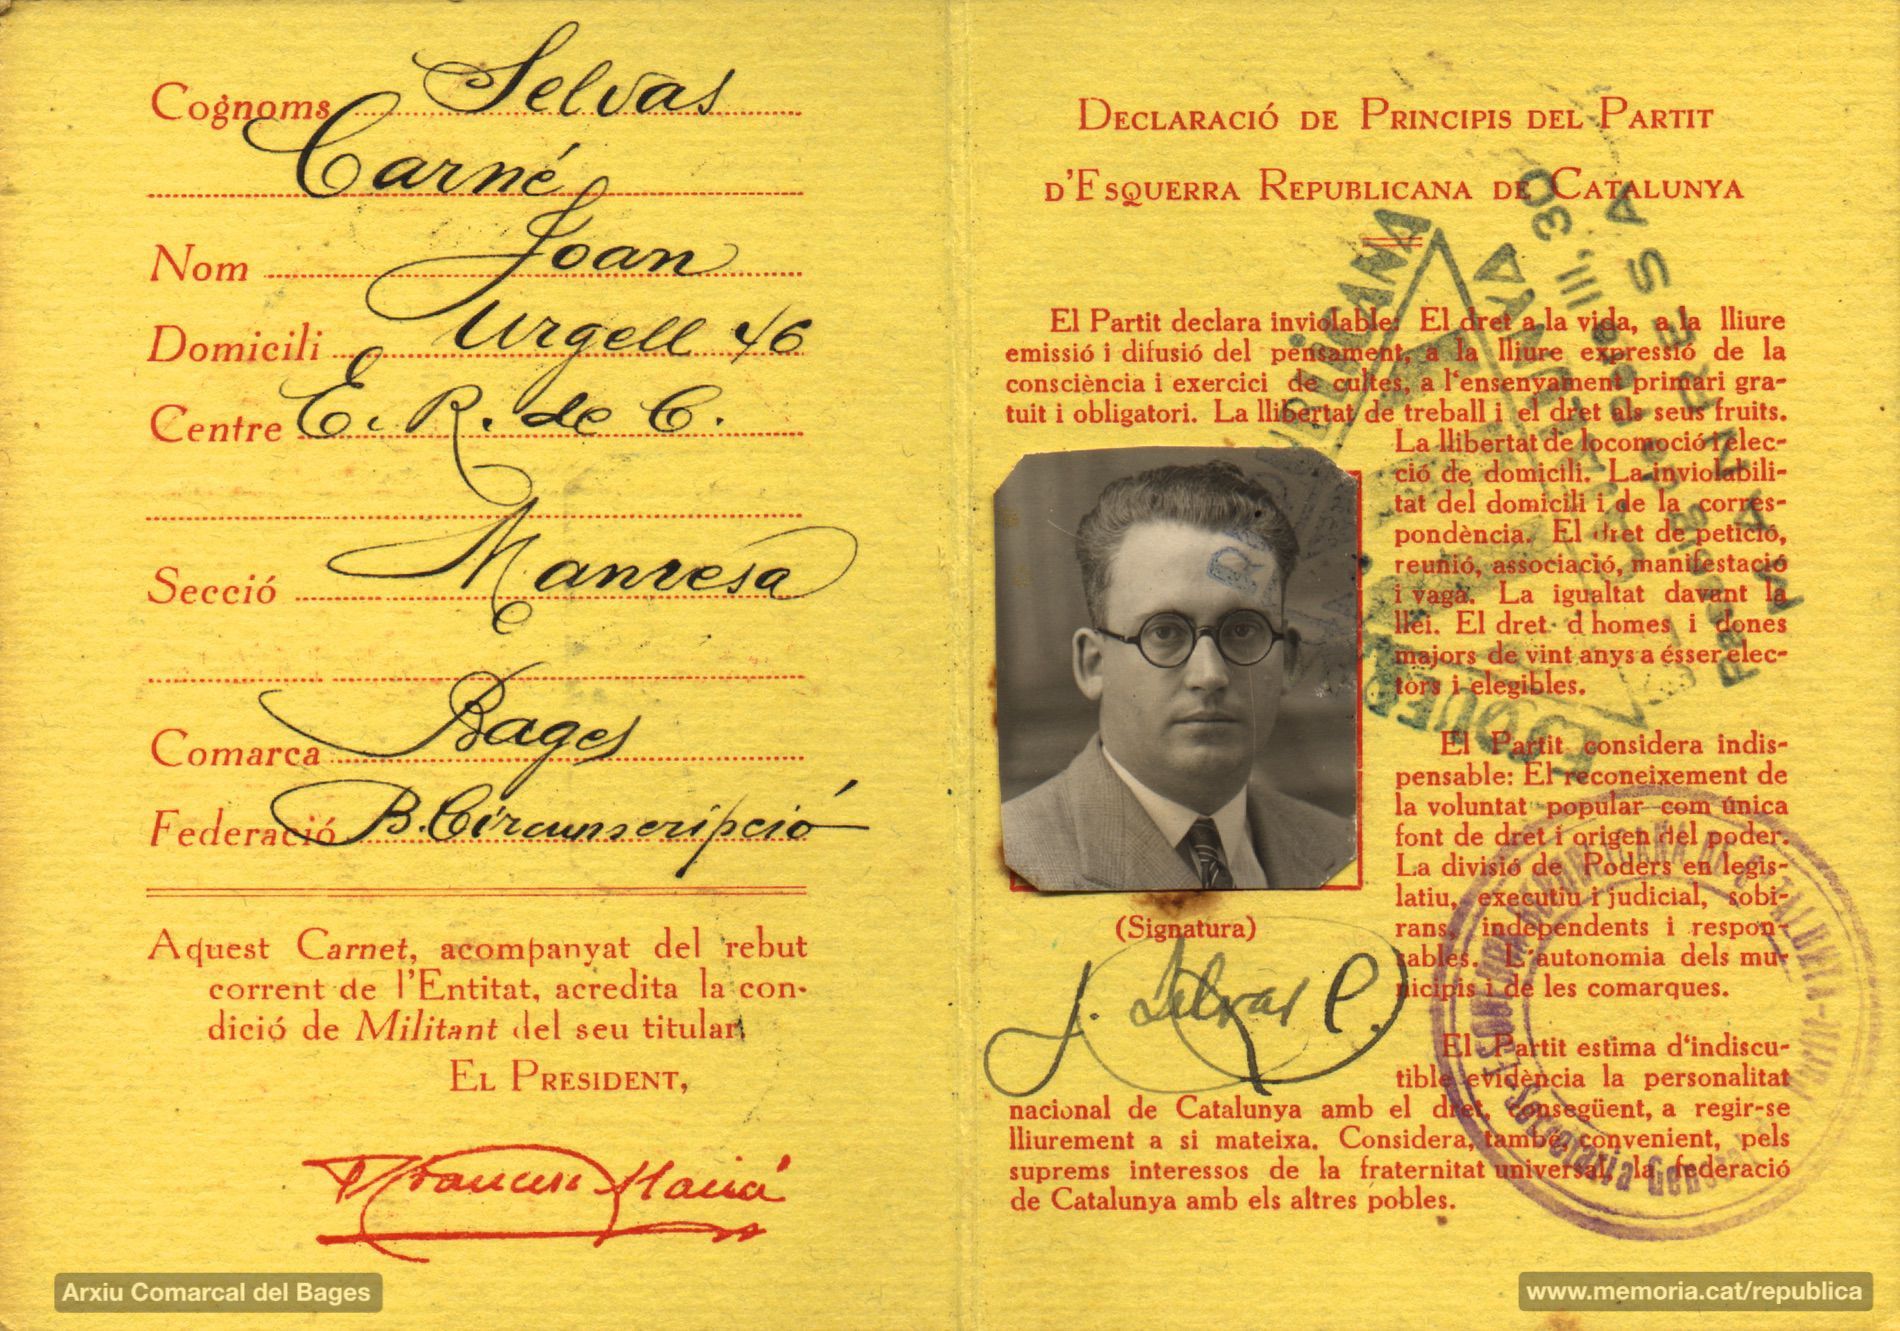 Cognoms Selvas
Carné
Nom Joan
Domicili Urgell 46
Centre E. R. de C.
Secció Manresa
Comarca Bages
Federació B. Circumscripció
Aquest Carnet, acompanyat del rebut
corrent de l'Entitat, acredita la con-
dició de Militant del seu titular
EL PRESIDENT,
Francesc Macià
DECLARACIÓ DE PRINCIPIS DEL PARTIT
D'ESQUERRA REPUBLICANA DE CATALUNYA
El Partit declara inviolable: El dret a la vida, a la lliure
emissió i difusió del pensament, a la lliure expressió de la
consciència i exercici de cultes, a l'ensenyament primari gra-
tuit i obligatori. La llibertat de treball i el dret als seus fruits.
La llibertat de locomoció i elec-
ció de domicili. La inviolabili-
tat del domicili i de la corres-
pondència. El dret de petició,
reunió, associació, manifestació
i vaga. La igualtat davant la
llei. El dret d homes i dones
majors de vint anys a ésser elec-
tors i elegibles.
El Partit considera indis-
pensable: El reconeixement de
la voluntat popular com única
font de dret i origen del poder.
La divisió de Poders en legis-
latiu, executiu i judicial, sobi-
rans, independents i respon-
sables. L'autonomia dels mu-
nicipis i de les comarques.
El Partit estima d'indiscu-
tible evidència la personalitat
nacional de Catalunya amb el dret, consegüent, a regir-se
lliurement a si mateixa. Considera, també, convenient, pels
suprems interessos de la fraternitat universal, la federació
de Catalunya amb els altres pobles.
(Signatura)
J. Selvas C.
ESQUERRA REPUBLICANA
MANRESA
Secretaria General
Arxiu Comarcal del Bages
www.memoria.cat/republica